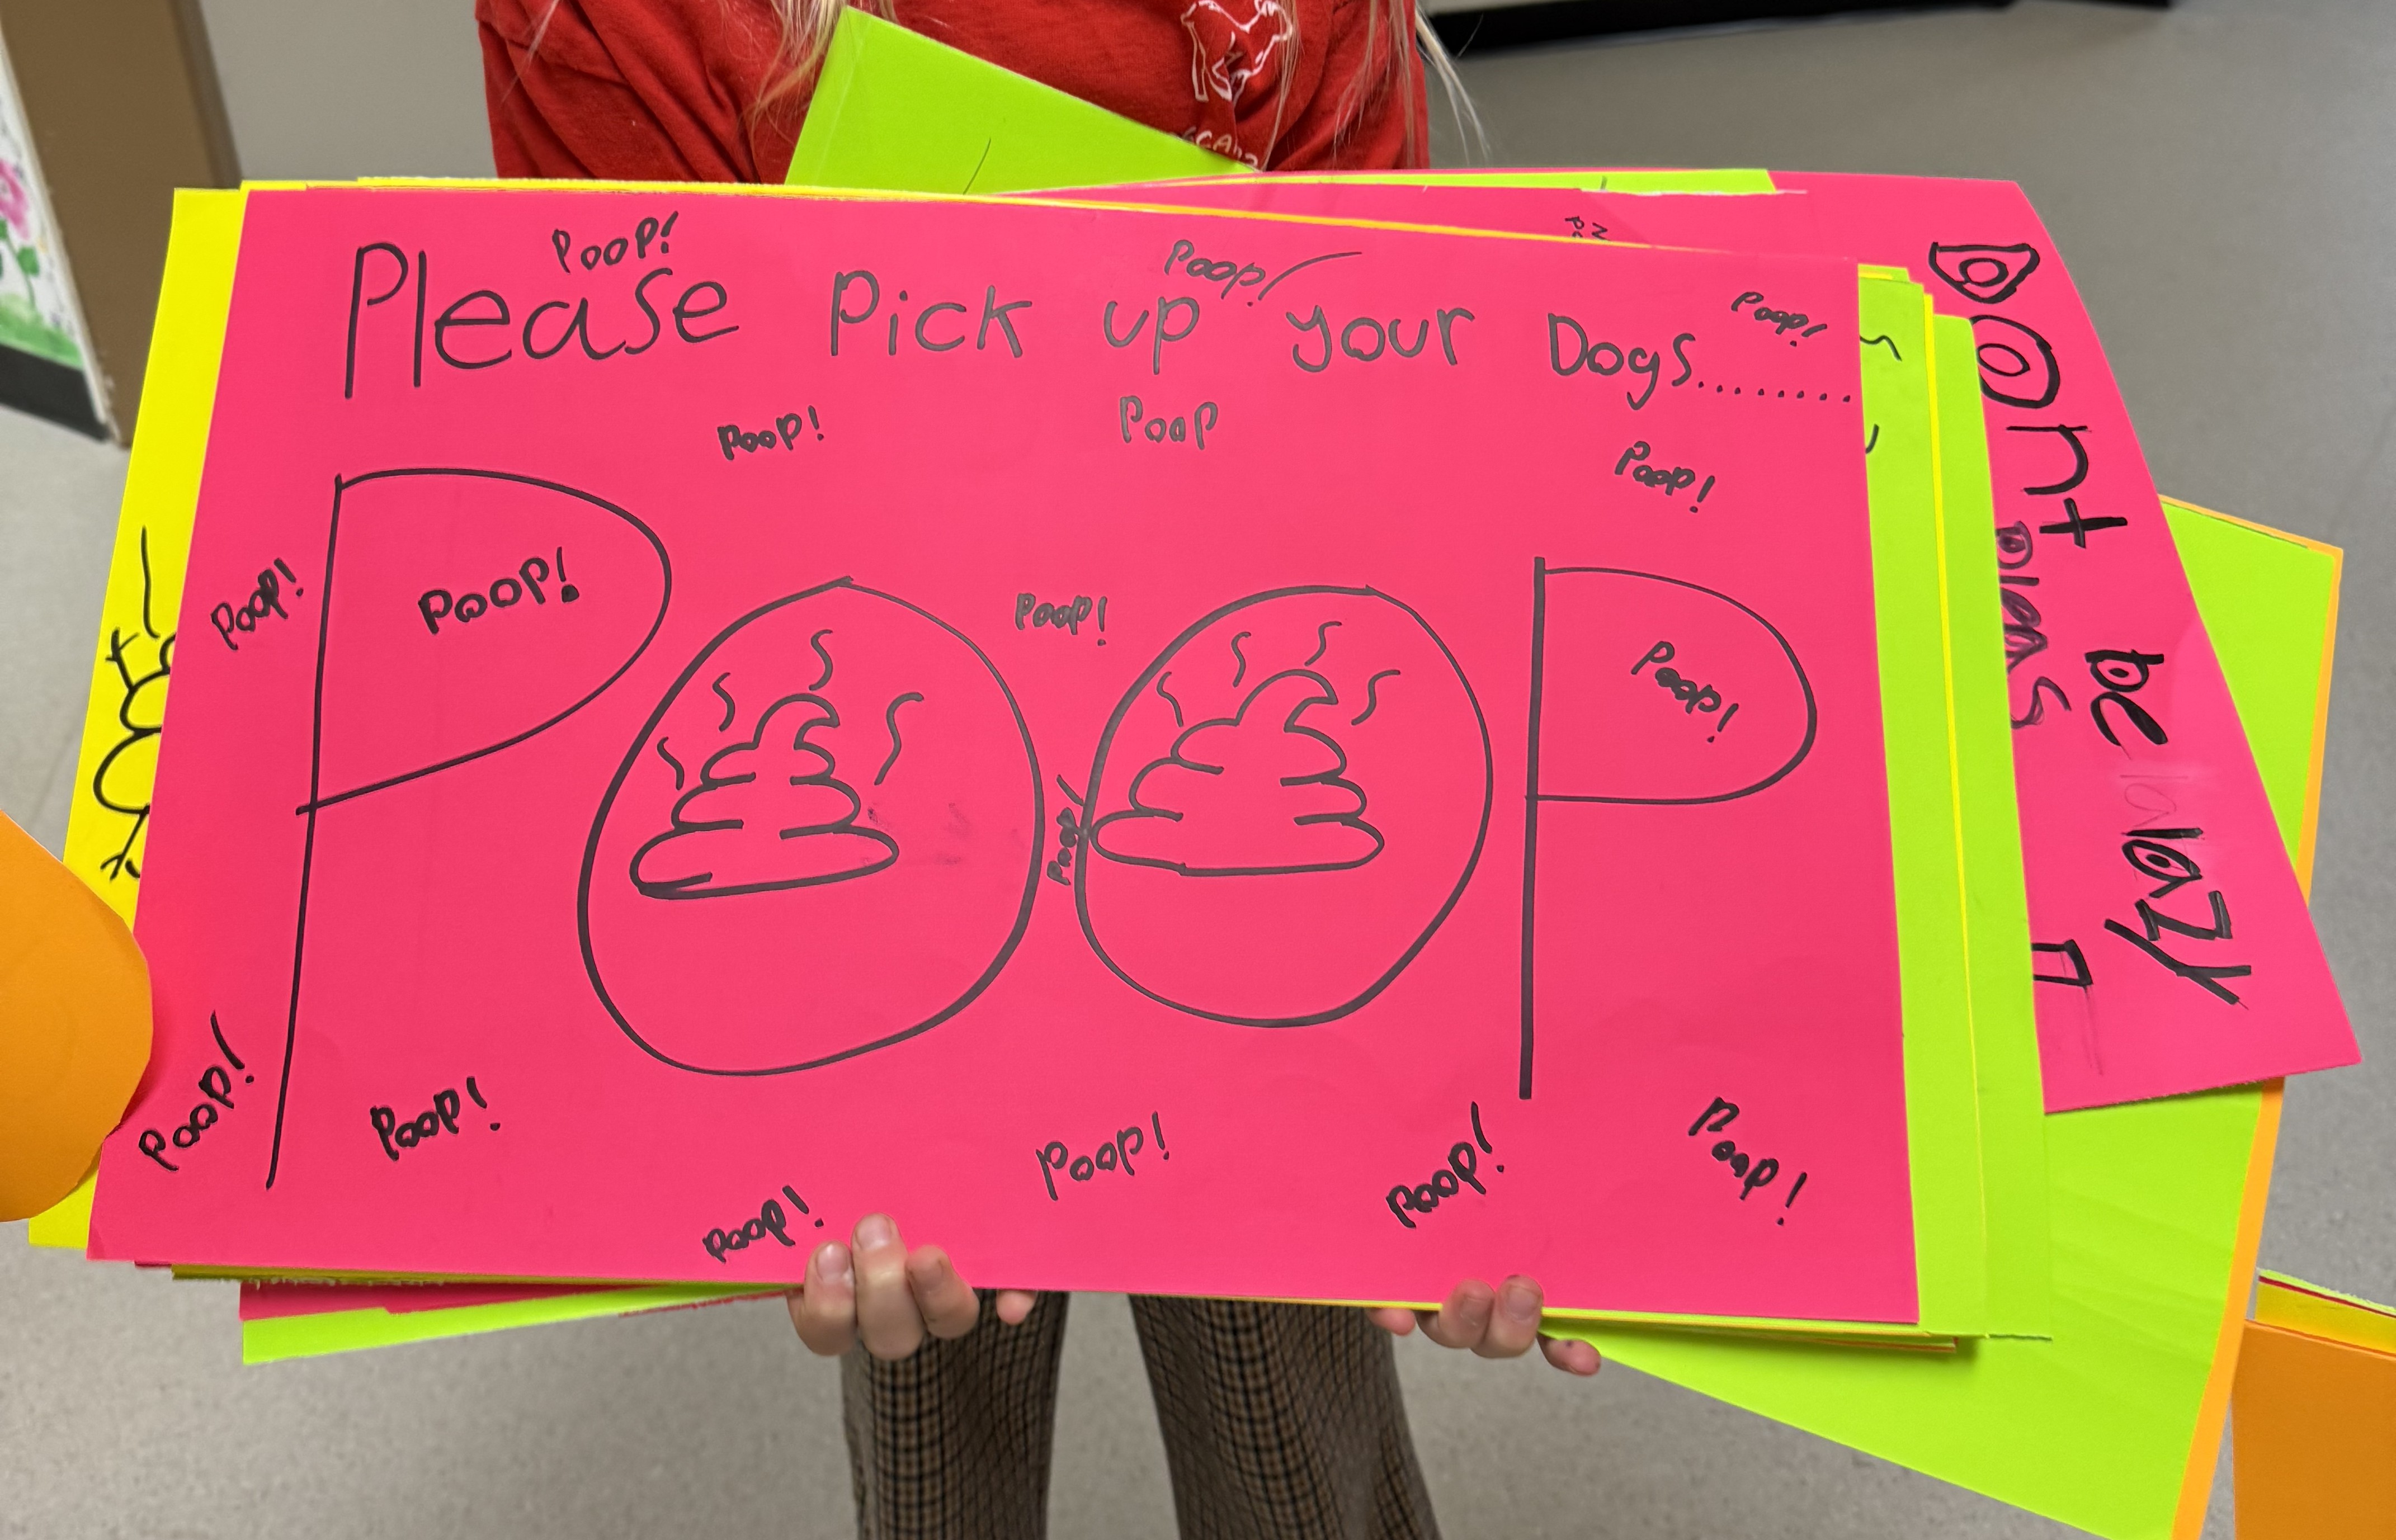 Poop!
Poop!
Poop!
Please Pick up your Dogs........
Poop!
Poop
Poop!
POOP
Poop!
Poop!
Poop!
Poop!
Poop!
Poop!
Poop!
Poop!
Poop!
Poop!
Poop!
Dont be lazy
pleas